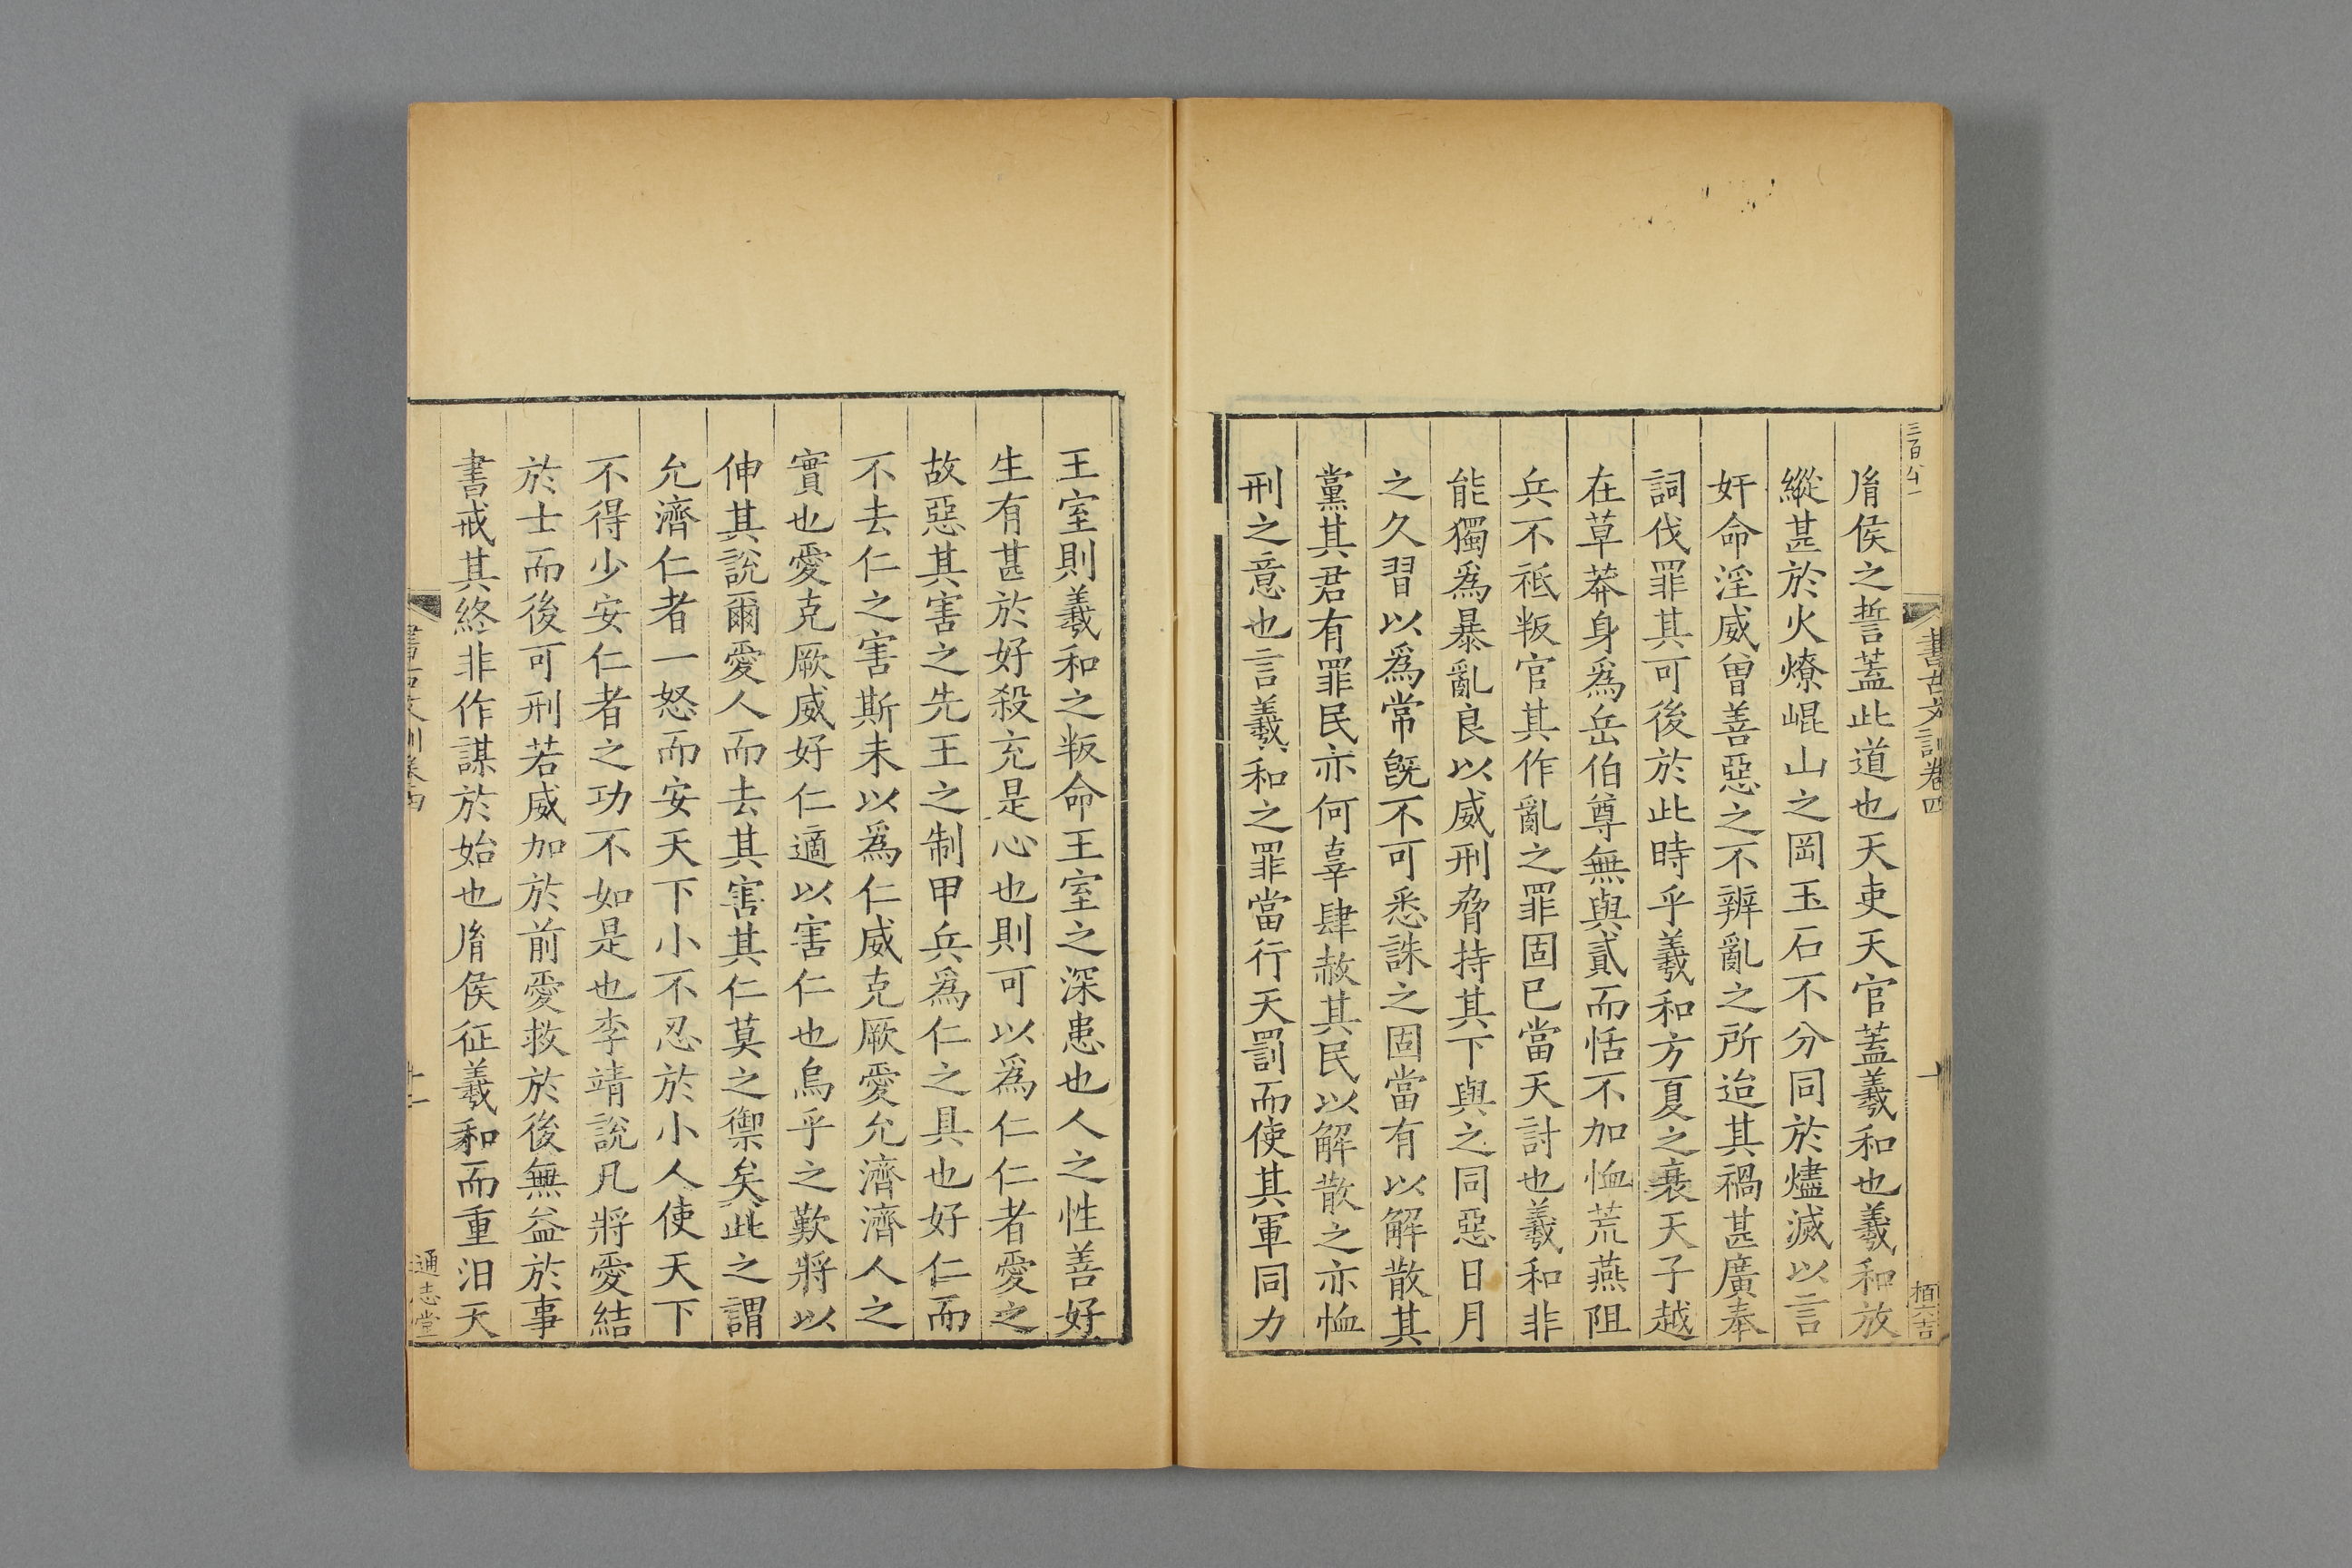 三百八十一
書古文訓卷四
栢六吉
胤侯之誓蓋此道也天吏天官蓋羲和也羲和放
縱甚於火燎崐山之岡玉石不分同於燼滅以言
奸命淫威曾善惡之不辨亂之所迨其禍甚廣奉
詞伐罪其可後於此時乎羲和方夏之衰天子越
在草莽身爲岳伯尊無與貳而恬不加恤荒燕阻
兵不祗叛官其作亂之罪固已當天討也羲和非
能獨爲暴亂良以威刑脅持其下與之同惡日月
之久習以爲常旣不可悉誅之固當有以解散其
黨其君有罪民亦何辜肆赦其民以解散之亦恤
刑之意也言羲和之罪當行天罰而使其軍同力
王室則羲和之叛命王室之深患也人之性善好
生有甚於好殺充是心也則可以爲仁仁者愛之
故惡其害之先王之制甲兵爲仁之具也好仁而
不去仁之害斯未以爲仁威克厥愛允濟濟人之
實也愛克厥威好仁適以害仁也烏乎之歎將以
伸其說爾愛人而去其害其仁莫之禦矣此之謂
允濟仁者一怒而安天下小不忍於小人使天下
不得少安仁者之功不如是也李靖說凡將愛結
於士而後可刑若威加於前愛救於後無益於事
書戒其終非作謀於始也胤侯征羲和而重汨天
書古文訓卷四
十二
通志堂